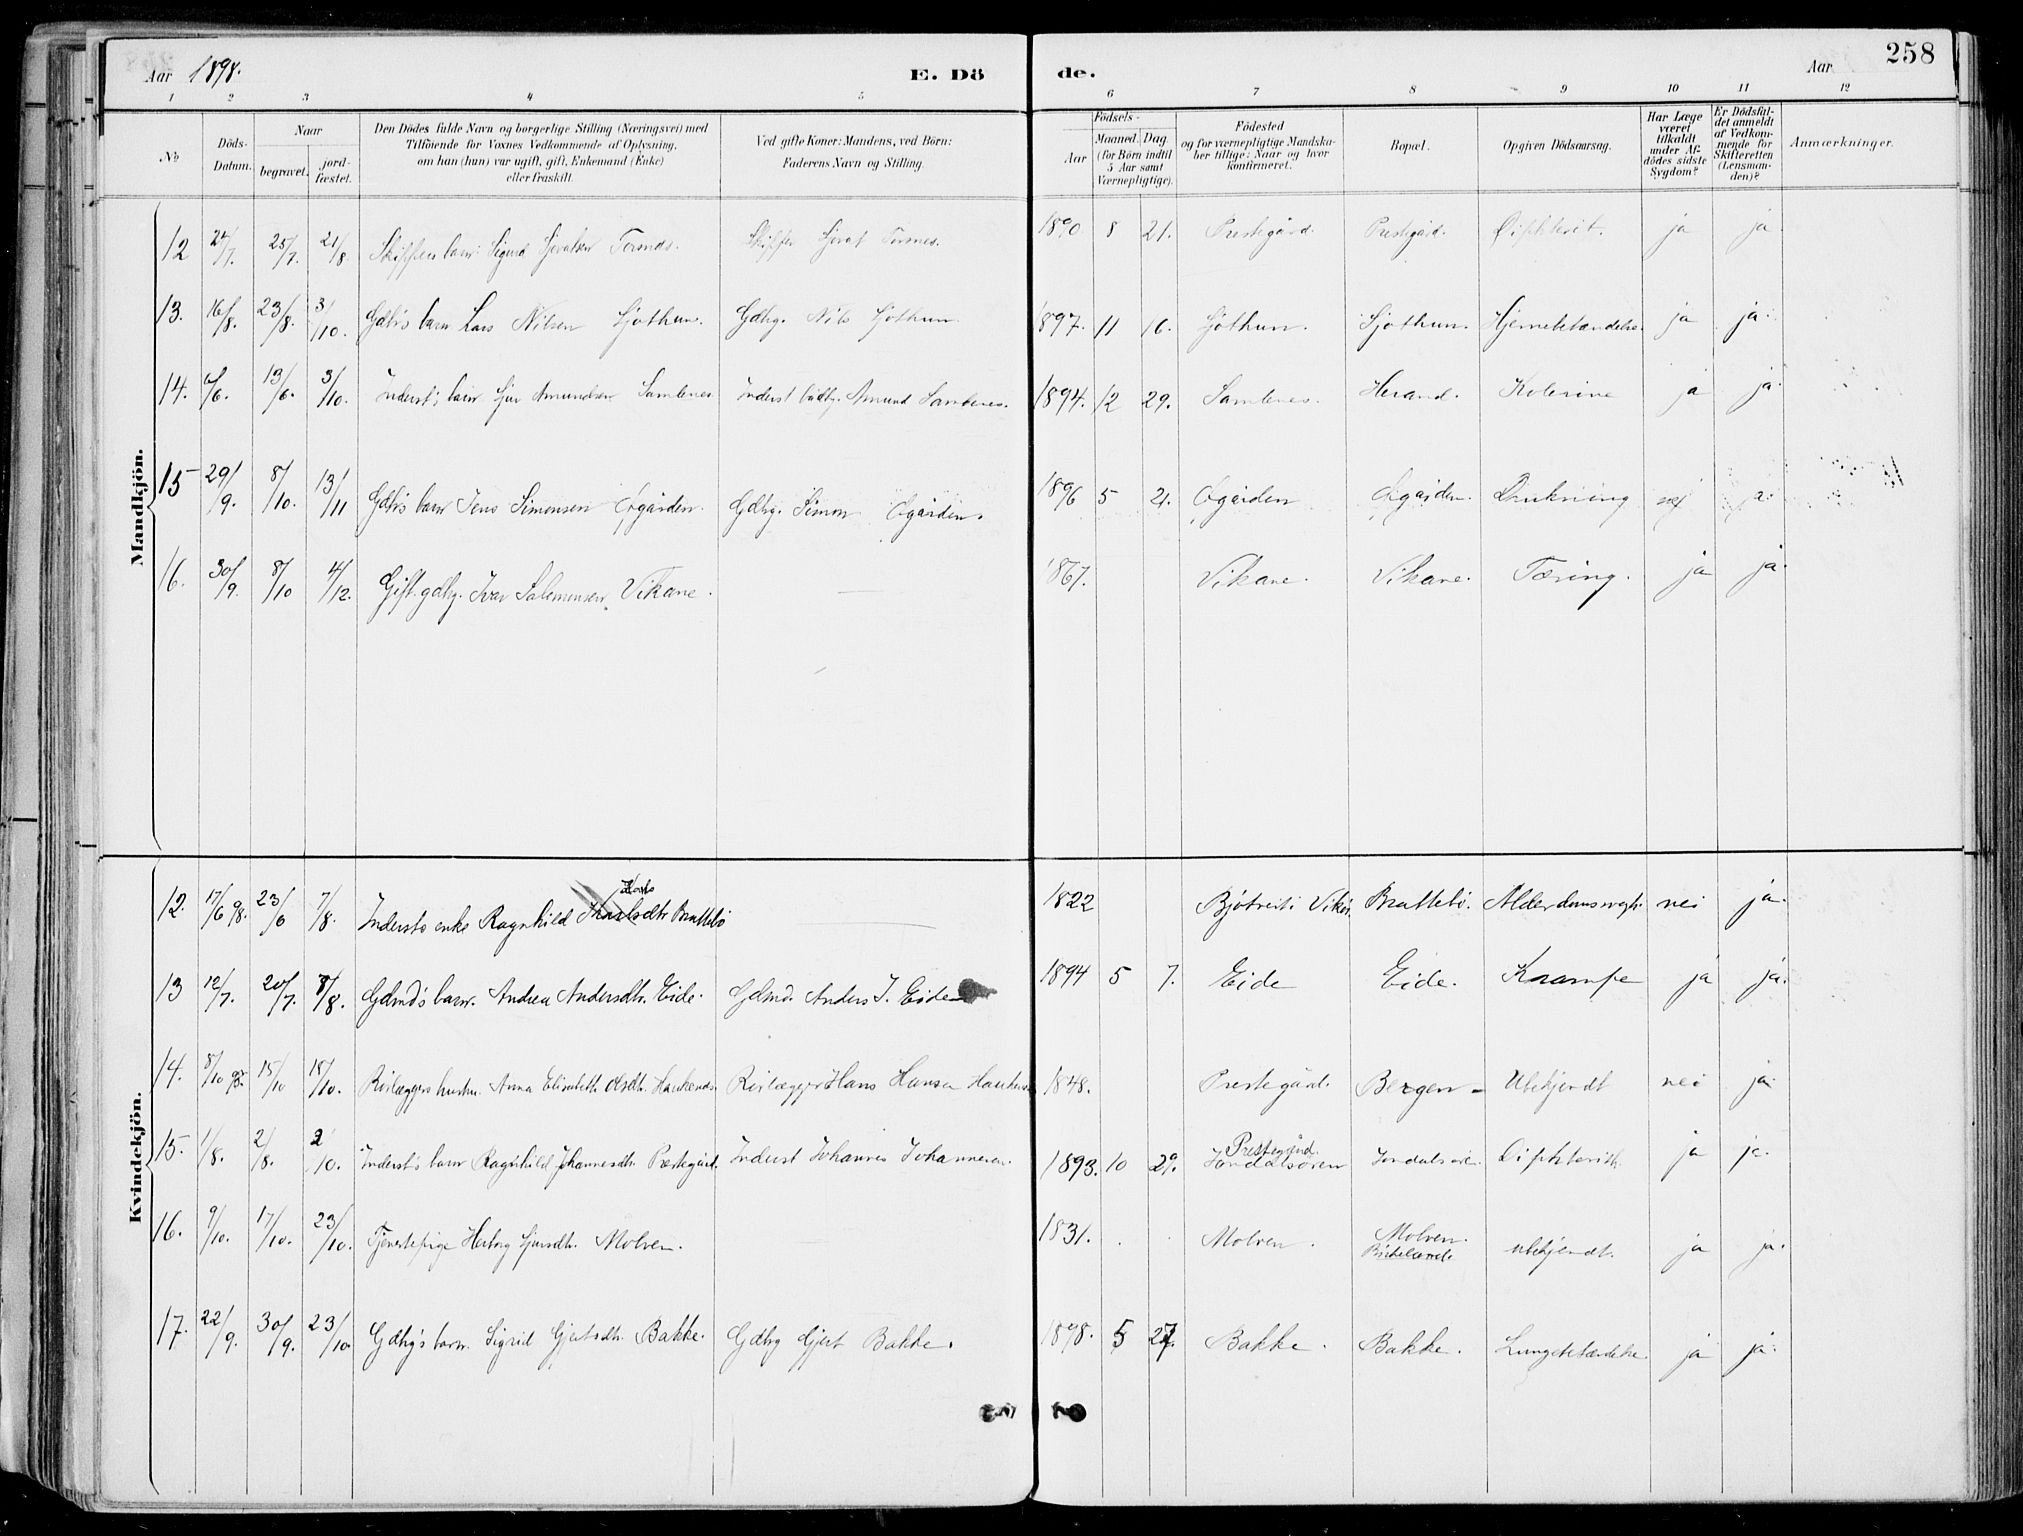 Aar 1898. E. Dö
de. Aar 258
1 2 3 4 5 6 7 8 9 10 11 12
No Döds-Datum. Naar begravet. jord-fæstet. Den Dödes fulde Navn og borgerlige Stilling (Næringsvei) med Tilföiende for Voxnes Vedkommende af Oplysning, om han (hun) var ugift, gift, Enkemand (Enke) eller fraskilt. Ved gifte Koner: Mandens, ved Börn: Faderens Navn og Stilling. Födsels- Aar Maaned. Dag. (for Börn indtil 5 Aar samt Værnepligtige). Födested og for værnepligtige Mandska-ber tillige: Naar og hvor konfirmeret. Bopæl. Opgiven Dödsaarsag. Har Læge været tilkaldt under Af-dödes sidste Sygdom? Er Dödsfal-det anmeldt af Vedkom-mende for Skifteretten (Lensman-den)? Anmærkninger.
Mandkjön.
12 24/7. 25/7. 21/8. Skippers barn Sigurd Sjovatsen Tormes. Skipper Sjovat Tormes. 1890 8 21. Prestegård. Prestegård. Difhterit. ja ja.
13. 16/8. 23/8. 3/10. Gdbr's barn Lars Nilsen Sjothun. Gdbrg. Nils Sjothun. 1897. 11 16. Sjothun. Sjothun. Hjernebetændelse. ja ja.
14. 6/6. 13/6. 3/10. Inderst's barn Sjur Amundsen Samlenes Inderst Amund Samlenes. 1894. 12 29. Samlenes. Herand. Kolerine ja ja.
15 29/9. 8/10. 13/11 Gdbr's barn Jens Simonsen Øgården. Gdbrg. Simon Øgården. 1896 5 21. Øgården Øgården. Drukning nej ja.
16. 30/9. 8/10 4/12. Gift. gdbrg. Ivar Salomonsen Vikane. 1867. Vikane. Vikane. Tæring. ja ja.
Kvindekjön.
12. 17/6 98. 23/6 7/8. Inderst's enke Ragnhild Brattebö 1822 Bjotveit i Vikör. Brattebö. Alderdomssvagh. nei ja.
13 12/7. 20/7. 8/8. Gdmd's barn. Andrea Andersdtr. Eide. Gdmd. Anders J. Eide 1894 5 7. Eide Eide. Krampe ja ja.
14. 8/10 98. 15/10 18/10. Rörlæggers hustru. Anna Elisabeth Olsdtr. Haukenes. Rörlægger Hans Hansen 1848. Prestegård. Bergen - Ubekjendt nei ja.
15. 1/8. 2/8. 2/10. Inderst's barn Ragnhild Johannesdtr. Prestegård. Inderst Johannes Johannesen. 1893. 10 29. Prestegård. Jondalsören Jondalsören Difhterith. ja ja.
16. 9/10. 17/10. 23/10. Tjenestepige Herborg Sjursdtr. Molven. 1831. Molven. Molven. Birkeland. ubekjendt. ja ja.
17. 22/9. 30/9. 23/10 Gdbrg's barn. Sigrid Gjertsdtr. Bakke. Gdbrg Gjert Bakke. 1898. 5 27. Bakke. Bakke. Lungebetændelse. ja ja.